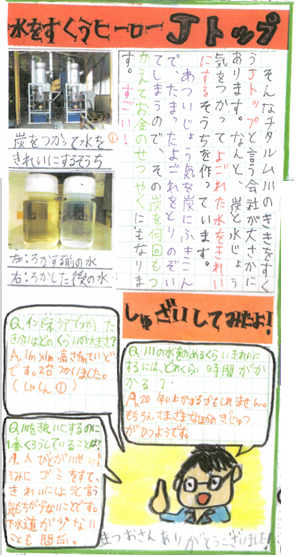 水をすくうヒーロー Jトップ
そんなチタルム川のききをすく
うJトップと言う会社が大さかに
あります。なんと、炭と水じょう
気をつかってよごれた水をきれい
にするそうちを作っています。
あついじょう気を炭にふきこん
で、たまったよごれをとりのぞい
てしまうので、その炭を何回もつ
かえてお金のせつやくにもなりま
す。すごい!
①
炭をつかって水を
きれいにするそうち
左:ろかする前の水
右:ろかした後の水
しゅざいしてみたよ!
Q.インドネシアでつかった
きかいはどのくらいの大きさ?
A.1m×1m 高さ
です。2台つかいました。
(しゃしん①)
Q.川の水を
にするには、どれくらい時間がか
かる?
A.20年以上かかるかもしれません。
もちろんさまざまなほかのぎじゅつ
がひつようです。
Q.川をきれいにするのに
1番くろうしていることは?
A.人びとが川や
うみにゴミをすて、
きれいにはと言う
気もちが少ないことです。
下水道が少ない
ことも問だい。
まつおさんありがとうございました!